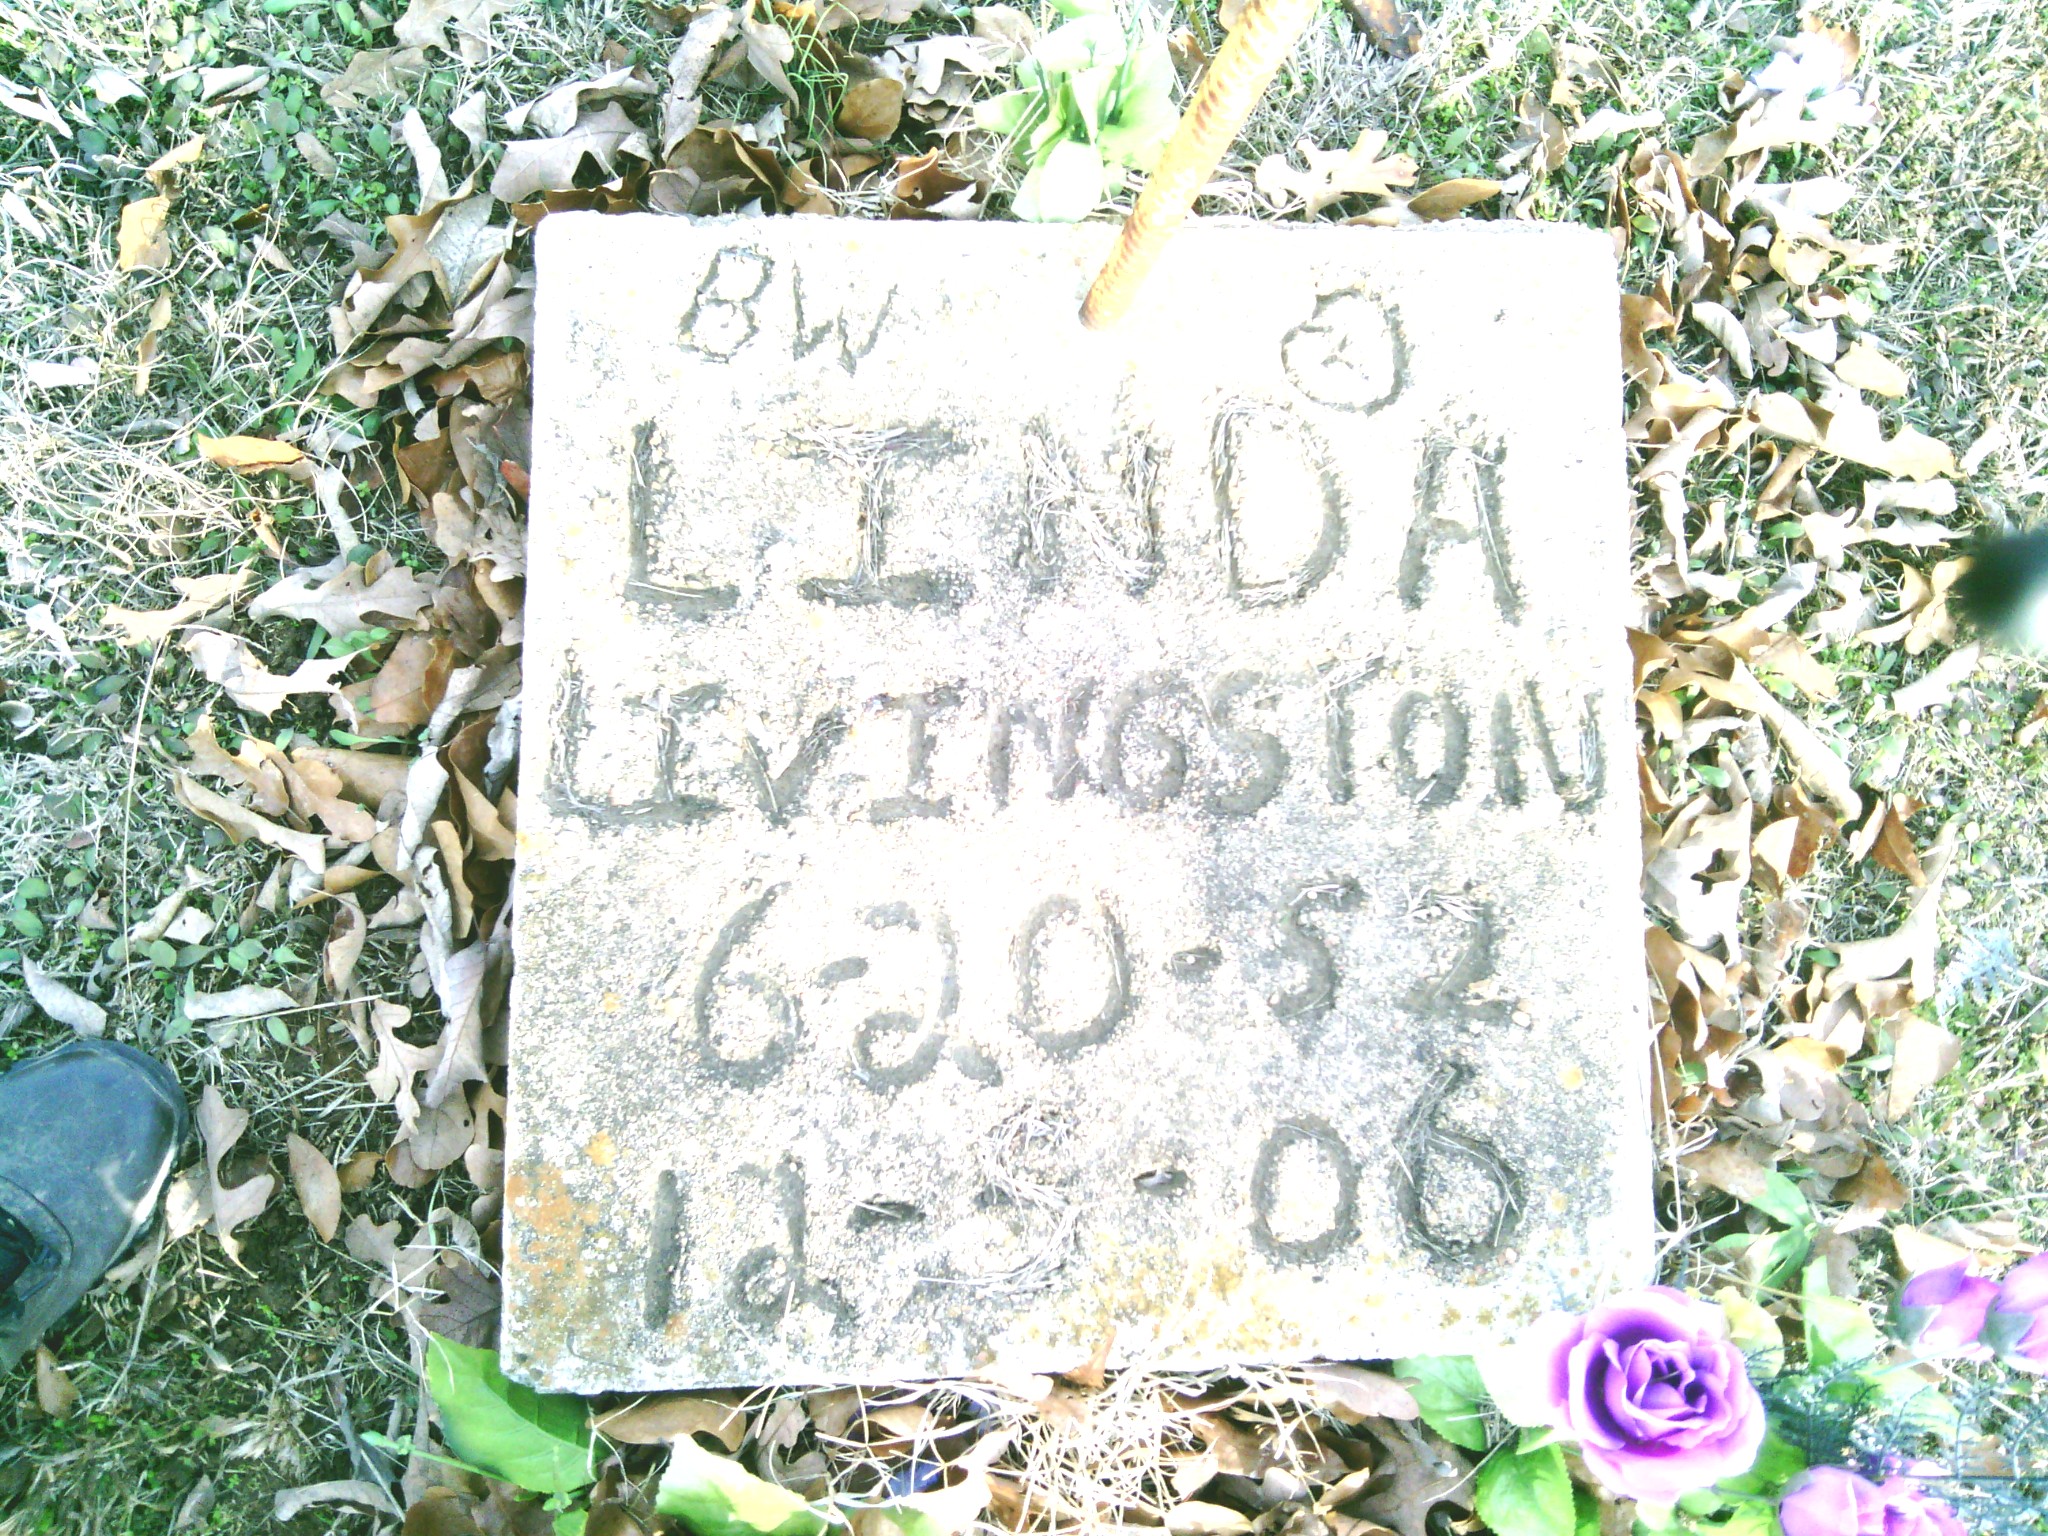 BW
LINDA
LEVINGSTON
6-20-52
12-5-06